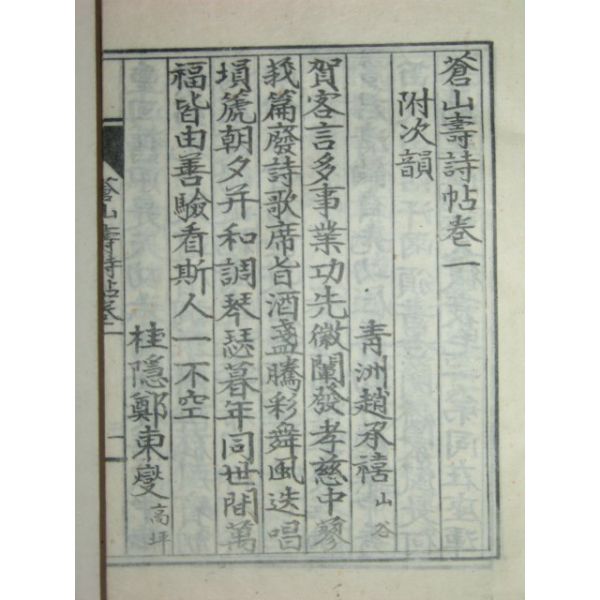 蒼山壽詩帖卷一
附次韻
青洲趙承禧山谷
賀客言多事業功先徽闡發孝慈中蓼
莪篇廢詩歌席旨酒盞騰彩舞風迭唱
塤篪朝夕并和調琴瑟暮年同世間萬
福皆由善驗看斯人一不空
桂隱鄭東燮高坪
蒼山壽詩帖卷一